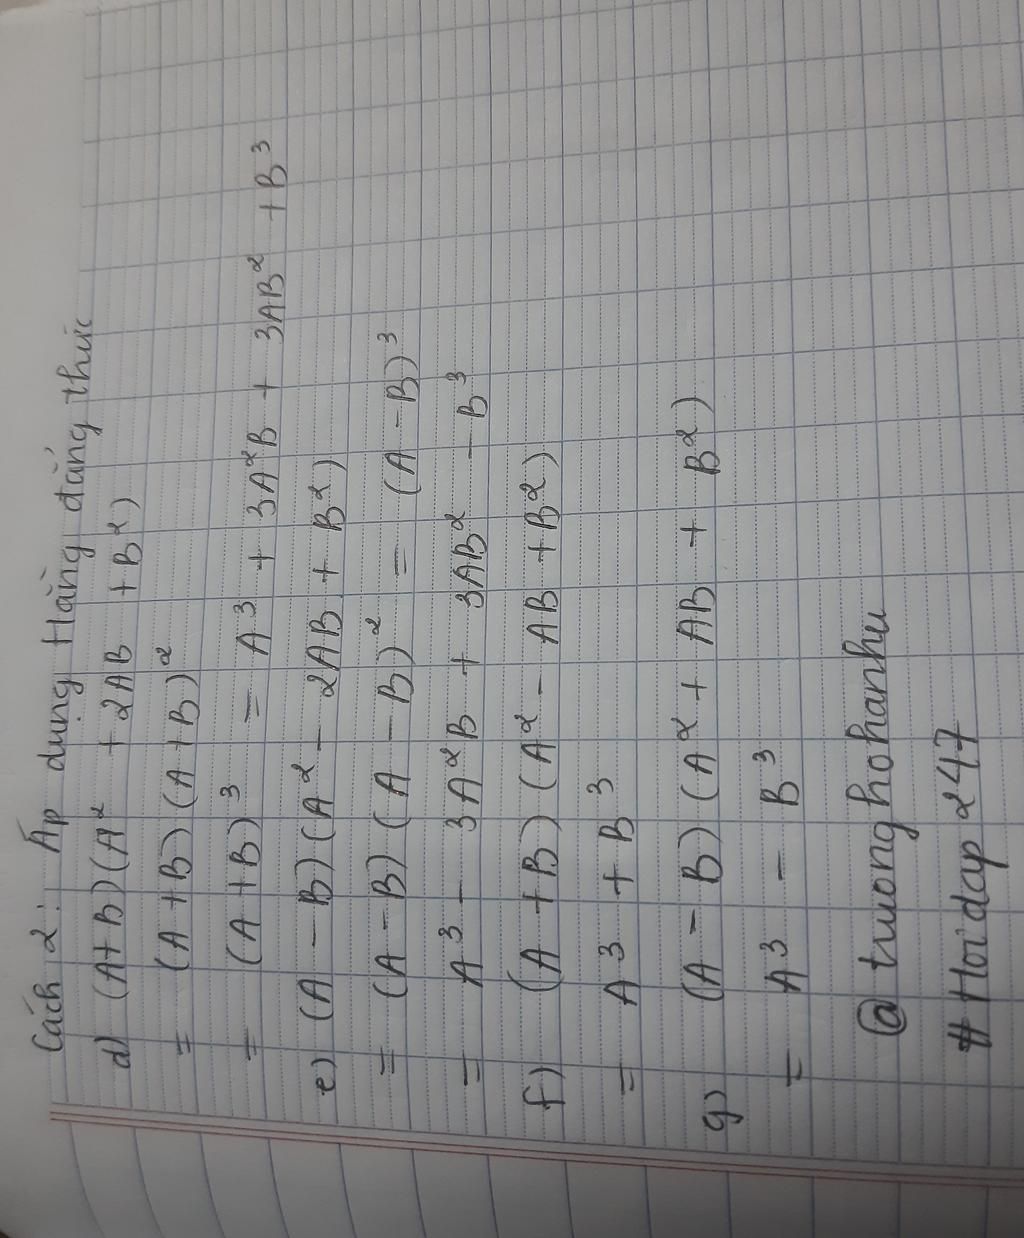 Cách 2: Áp dụng Hằng đẳng thức
d) (A+B)(A² + 2AB + B²)
= (A+B)(A+B)²
= (A+B)³ = A³ + 3A²B + 3AB² + B³
e) (A - B)(A² - 2AB + B²)
= (A-B)(A-B)² = (A-B)³
= A³ - 3A²B + 3AB² - B³
f) (A+B)(A² - AB + B²)
= A³ + B³
g) (A - B)(A² + AB + B²)
= A³ - B³
@truonghohanhu
#Hoidap247